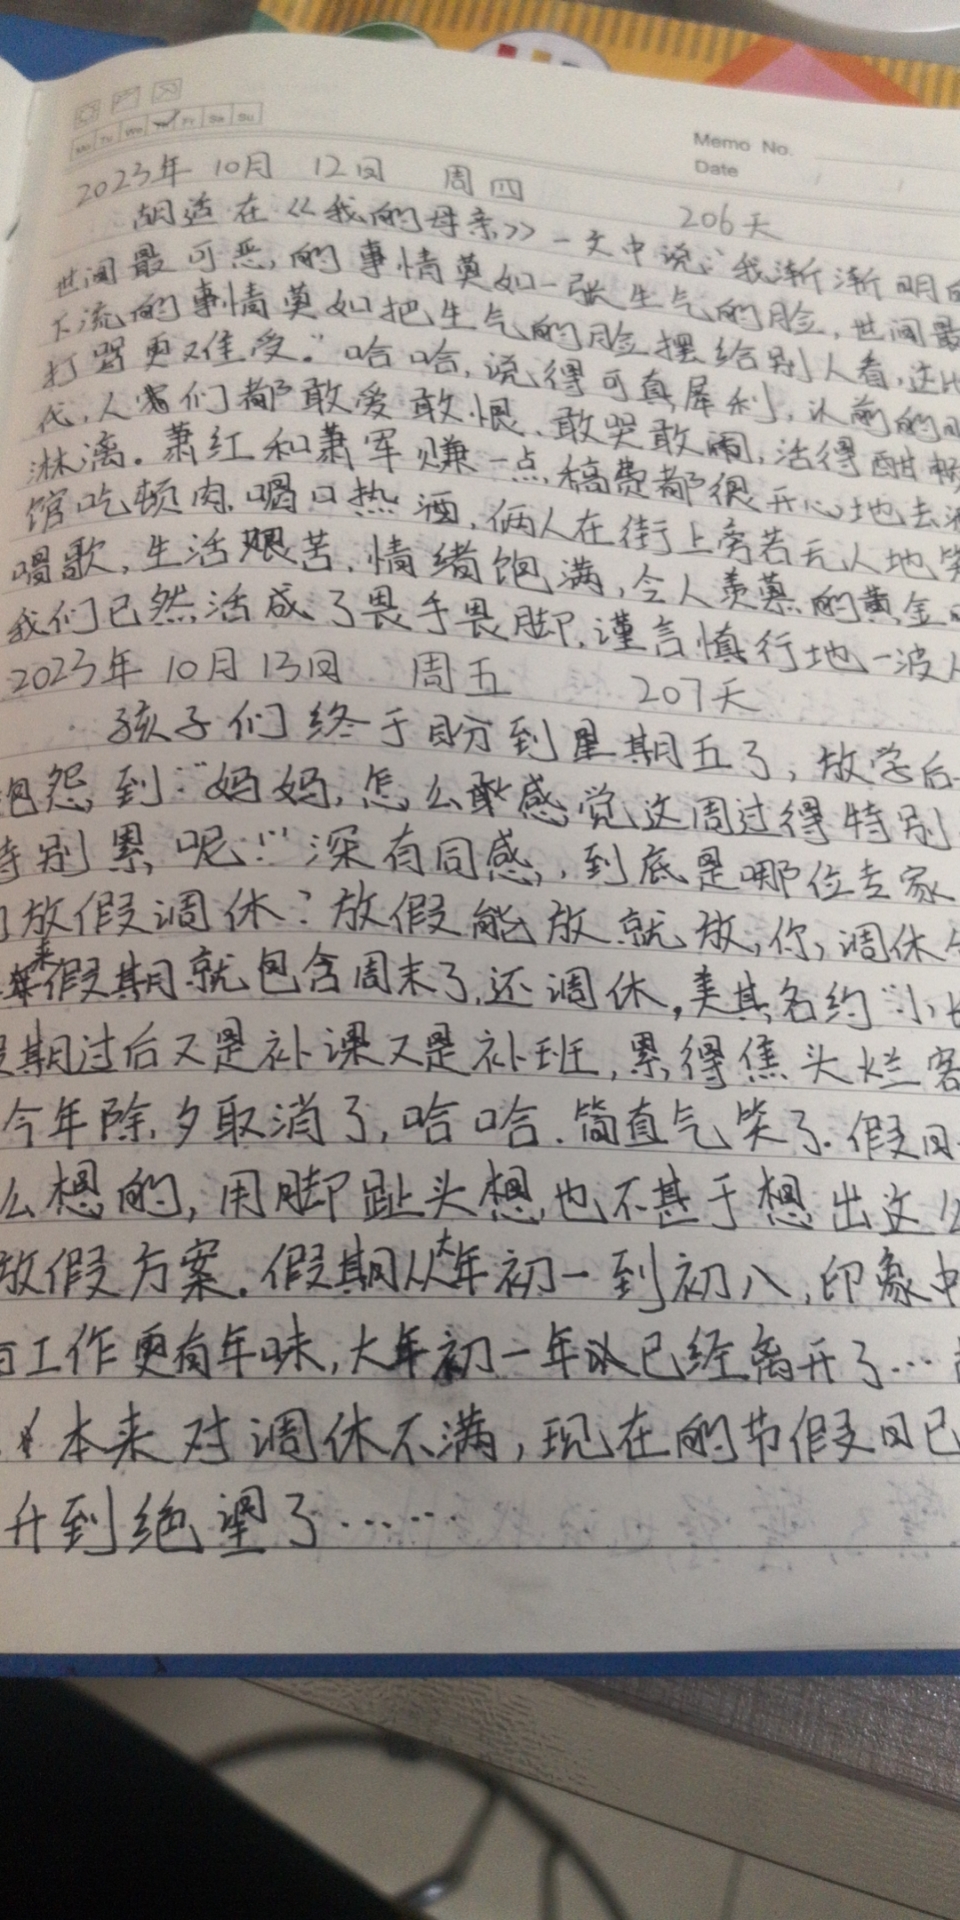 Mo Tu We Th Fr Sa Su
Memo No.
Date
2023年 10月 12日 周四 206天
胡适在《我的母亲》一文中说:"我渐渐明
世间最可恶的事情莫如一张生气的脸,世间最
下流的事情莫如把生气的脸摆给别人看,这比
打骂更难受。"哈哈,说得可真犀利,以前的
代,人家们都敢爱敢恨、敢哭敢闹,活得酣畅
淋漓。萧红和萧军赚一点稿费都很开心地去
馆吃顿肉,喝口热酒,俩人在街上旁若无人地
唱歌,生活艰苦,情绪饱满,令人羡慕的黄金
我们已然活成了畏手畏脚,谨言慎行地一波
2023年 10月 13日 周五 207天
孩子们终于盼到星期五了,放学后
抱怨到:"妈妈,怎么感觉这周过得特别
特别累呢!"深有同感,到底是哪位专家
放假调休?放假能放就放,你调休
来假期就包含周末了,还调休,美其名约"小
假期过后又是补课又是补班,累得焦头烂
今年除夕取消了,哈哈.简直气笑了.假日
么想的,用脚趾头想也不甚于想出这
放假方案.假期从大年初一到初八,印象中
工作更有年味,大年初一年味已经离开了…
本来对调休不满,现在的节假日已
升到绝望了……